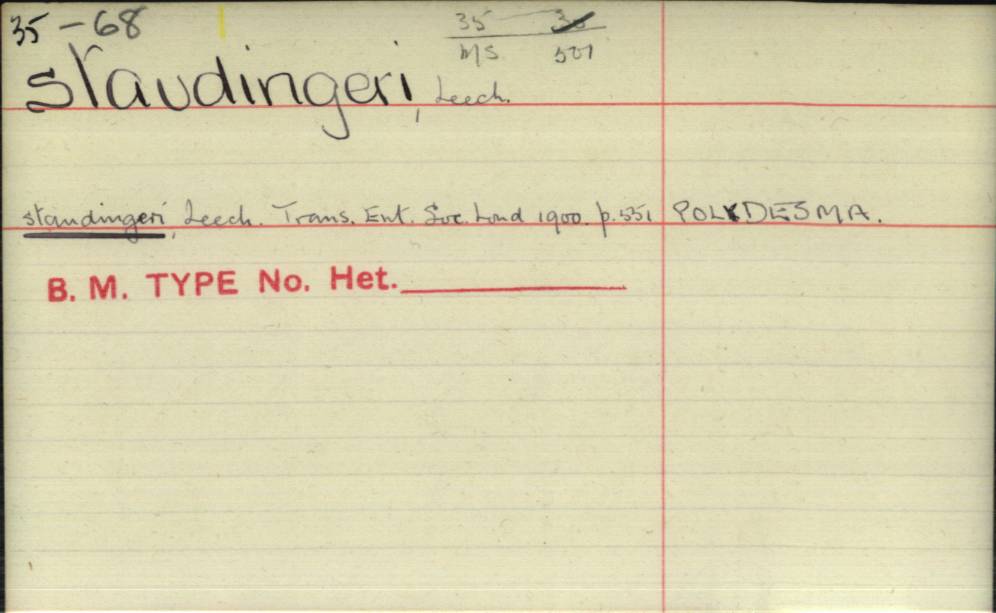 35-68
35 36
MS 501
staudingeri, Leech.
staudingeri, Leech. Trans. Ent. Soc. Lond 1900. p.551 POLYDESMA.
B. M. TYPE No. Het.